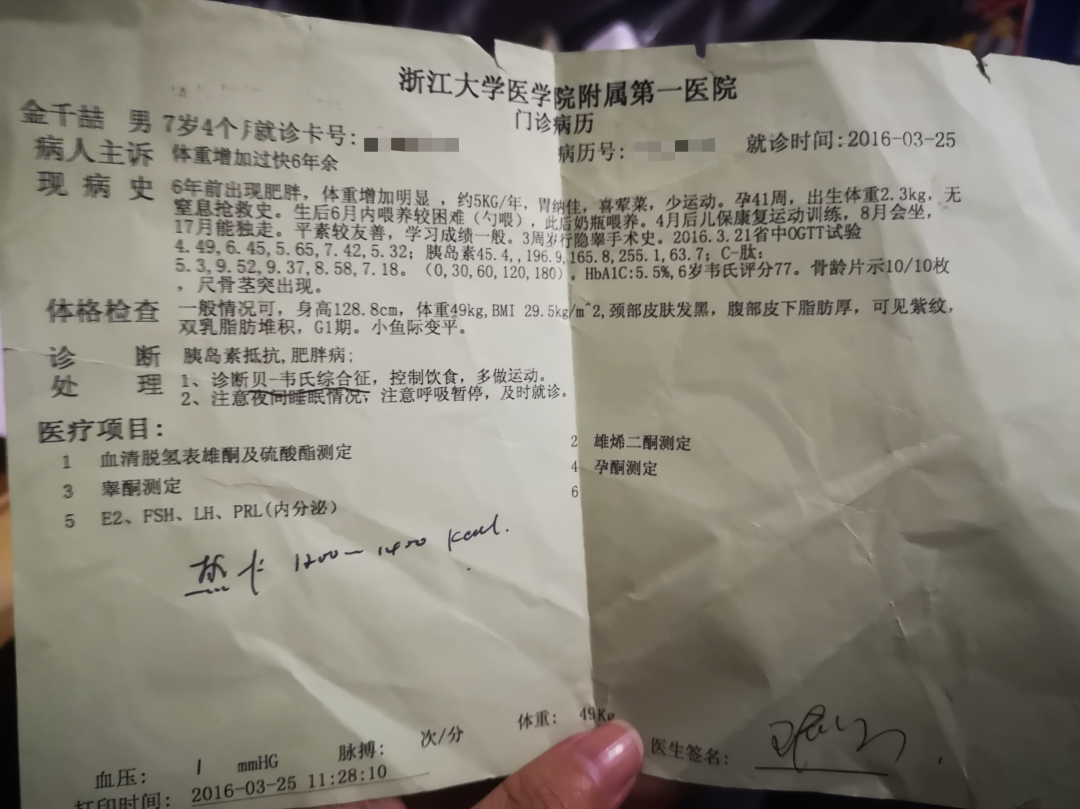 浙江大学医学院附属第一医院
门诊病历
金千喆 男 7岁4个月就诊卡号: 病历号: 就诊时间:2016-03-25
病人主诉 体重增加过快6年余
现病史 6年前出现肥胖，体重增加明显，约5KG/年，胃纳佳，喜荤菜，少运动。孕41周，出生体重2.3kg，无
窒息抢救史。生后6月内喂养较困难（勺喂），此后奶瓶喂养。4月后儿保康复运动训练，8月会坐，
17月能独走。平素较友善，学习成绩一般。3周岁行隐睾手术史。2016.3.21省中OGTT试验
4.49,6.45,5.65,7.42,5.32；胰岛素45.4,,196.9,165.8,255.1,63.7；C-肽：
5.3,9.52,9.37,8.58,7.18。（0,30,60,120,180）。HbA1C:5.5%,6岁韦氏评分77。骨龄片示10/10枚
，尺骨茎突出现。
体格检查 一般情况可，身高128.8cm，体重49kg,BMI 29.5kg/m^2,颈部皮肤发黑，腹部皮下脂肪厚，可见紫纹，
双乳脂肪堆积，G1期。小鱼际变平。
诊 断 胰岛素抵抗,肥胖病;
处 理 1、诊断贝-韦氏综合征，控制饮食，多做运动。
2、注意夜间睡眠情况，注意呼吸暂停，及时就诊。
医疗项目:
1 血清脱氢表雄酮及硫酸酯测定 2 雄烯二酮测定
3 睾酮测定 4 孕酮测定
5 E2、FSH、LH、PRL(内分泌) 6
热卡 1200~1400 kcal.
血压: / mmHG 脉搏: 次/分 体重: 49Kg 医生签名:
打印时间: 2016-03-25 11:28:10